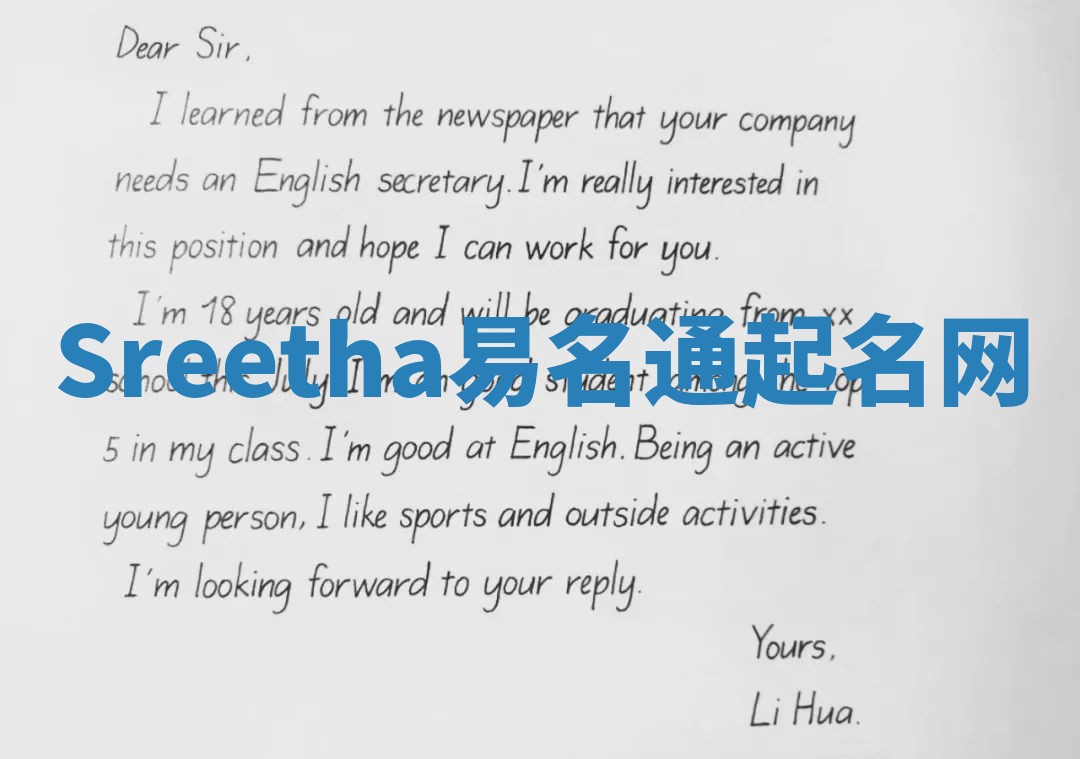 Dear Sir,
I learned from the newspaper that your company
needs an English secretary. I'm really interested in
this position and hope I can work for you.
I'm 18 years old and will be graduating from xx
Sreetha易名通起名网
school this July. I'm an good student among the top
5 in my class. I'm good at English. Being an active
young person, I like sports and outside activities.
I'm looking forward to your reply.
Yours,
Li Hua.